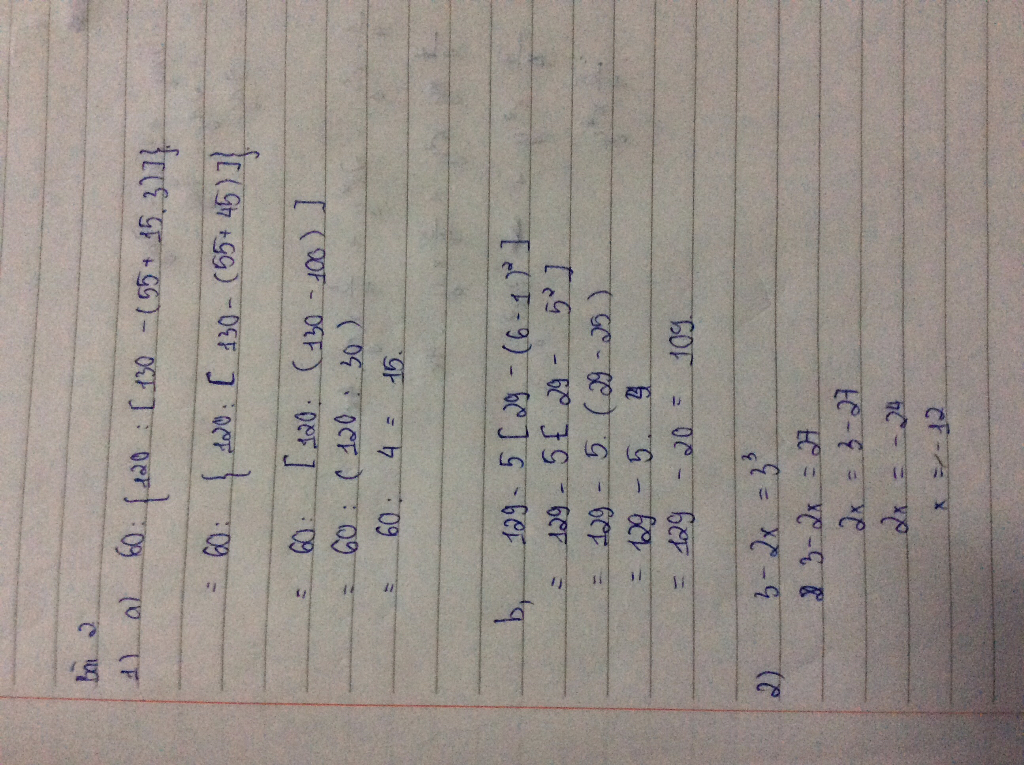 Bài 2
1) a) 60 : {120 : [130 - (55 + 15.3)]}
= 60 : {120 : [130 - (55 + 45)]}
= 60 : [120 : (130 - 100)]
= 60 : (120 : 30)
= 60 : 4 = 15.
b, 129 - 5 [29 - (6 - 1)²]
= 129 - 5 [29 - 5²]
= 129 - 5. (29 - 25)
= 129 - 5. 4
= 129 - 20 = 109
2) 3 - 2x = 3³
3 - 2x = 27
2x = 3 - 27
2x = - 24
x = - 12